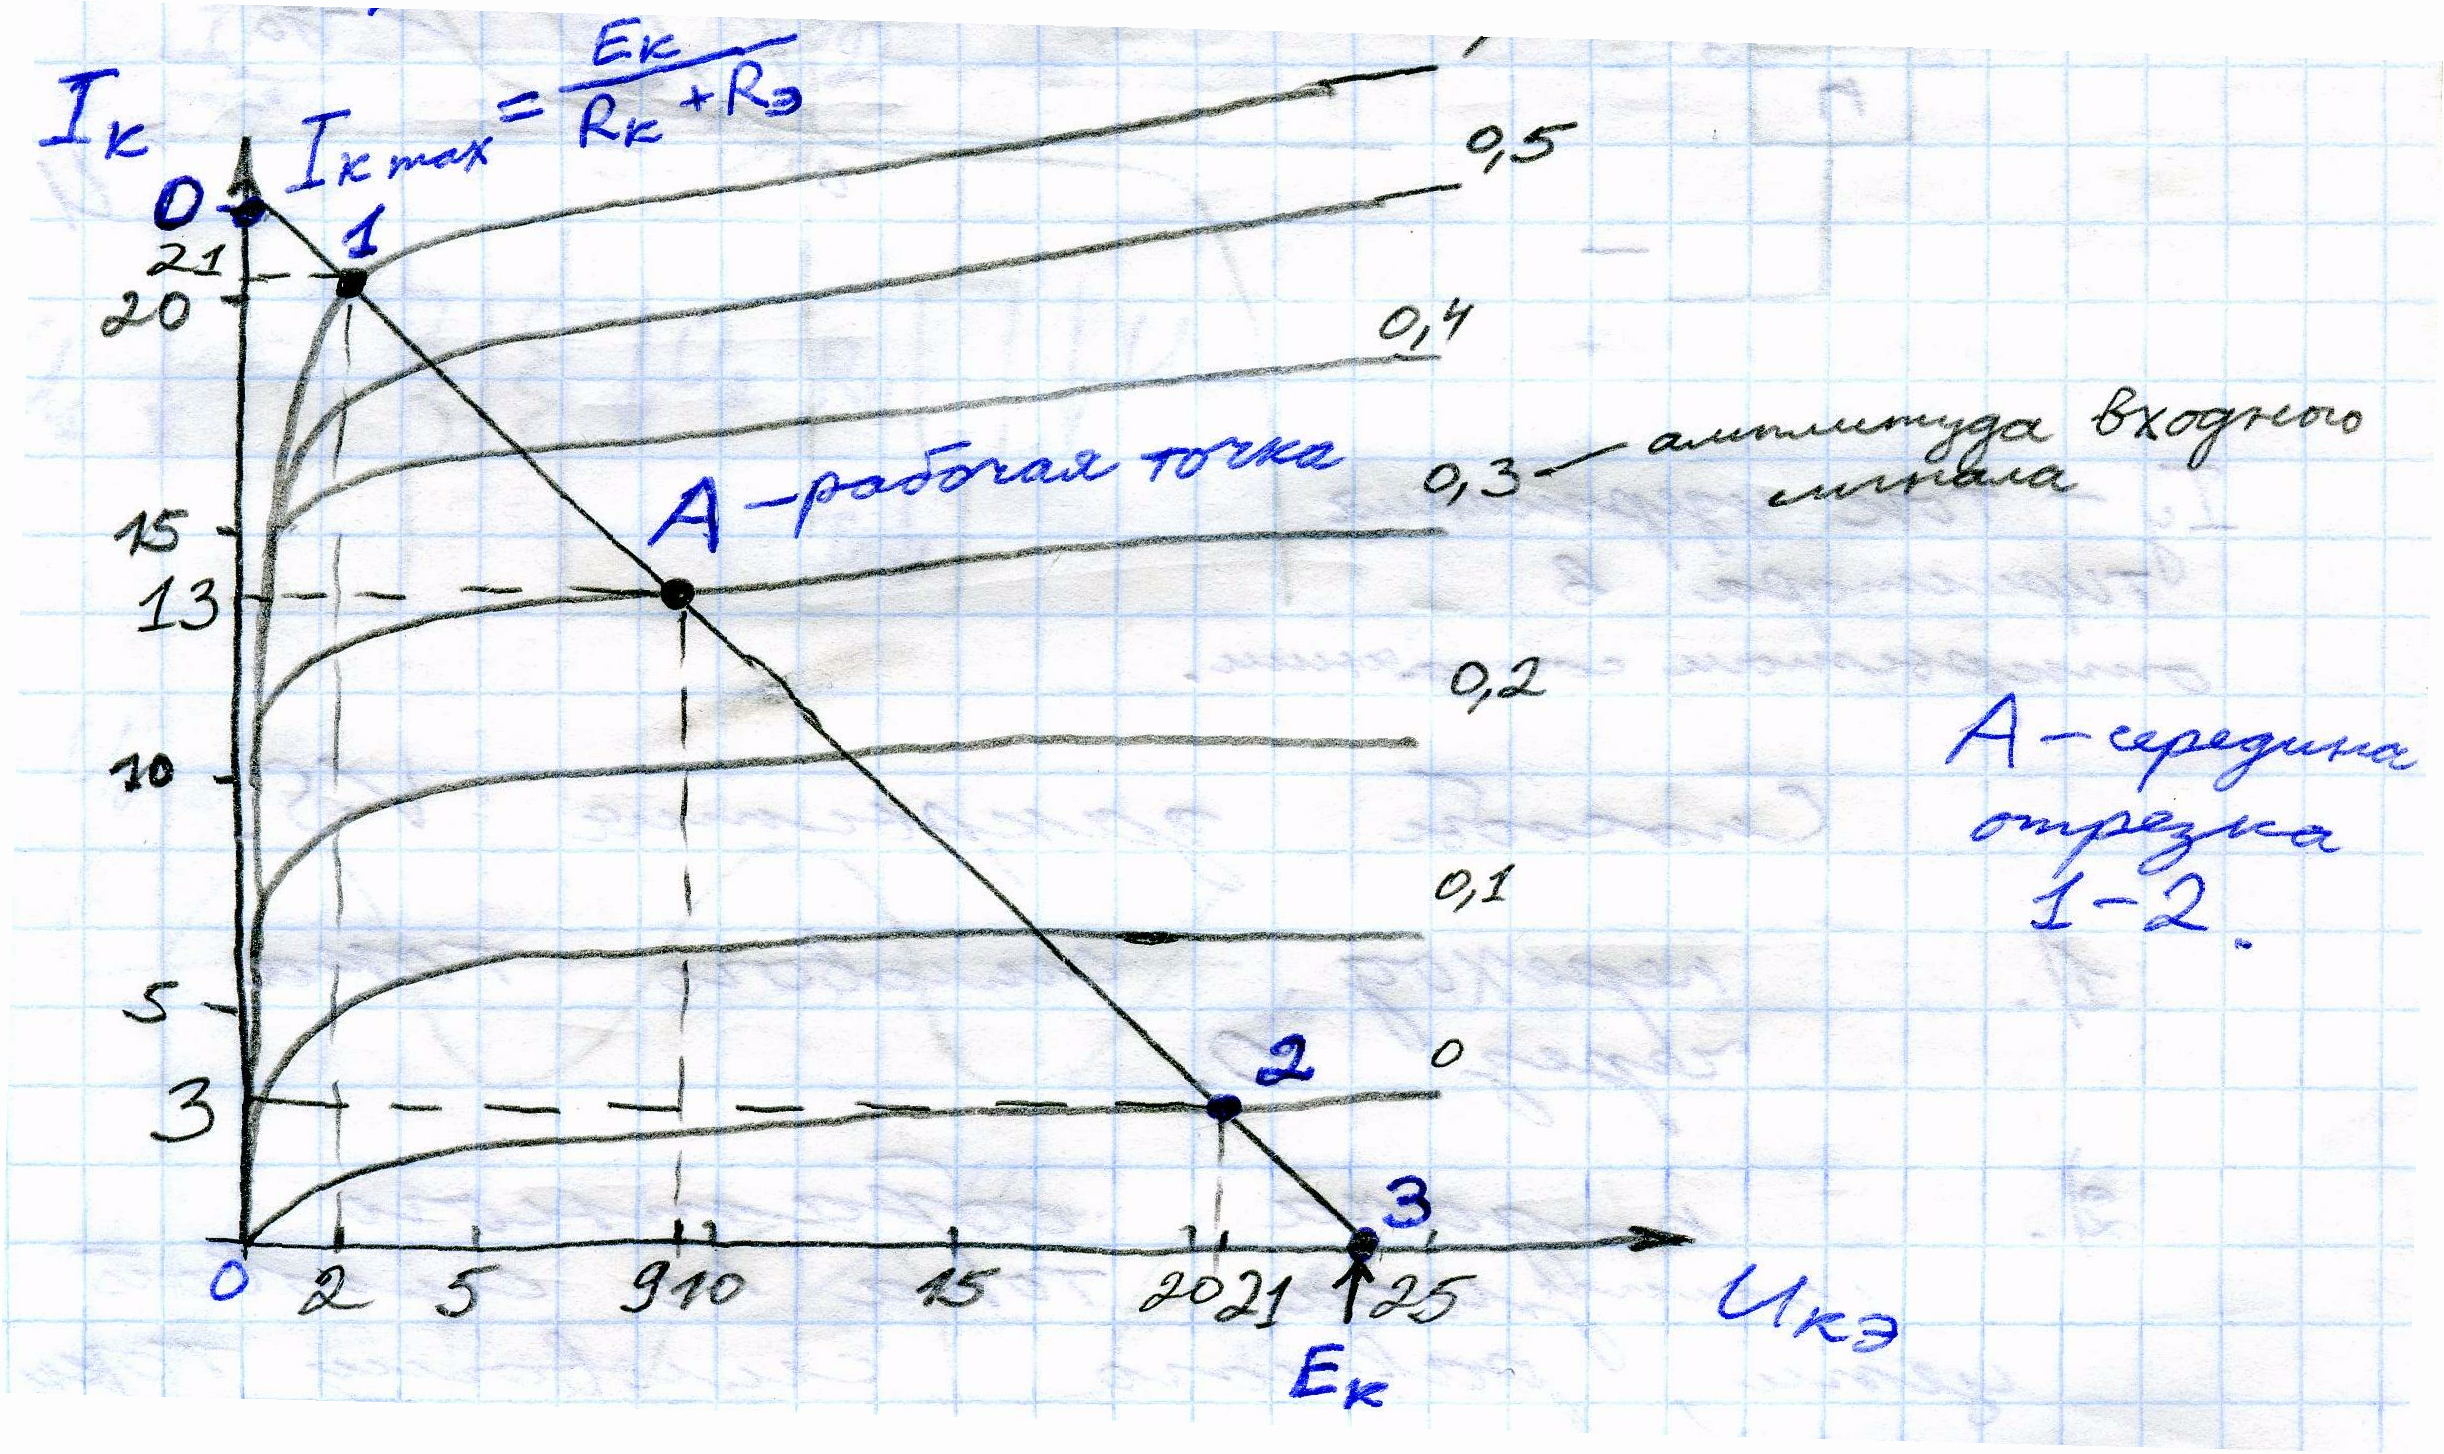 Iк
Iк max = Eк / (Rк + Rэ)
0
1
21
20
0,5
0,4
A – рабочая точка
0,3 – амплитуда входного
сигнала
15
13
0,2
A – середина
отрезка
1 – 2.
10
0,1
5
2
0
3
3
0 2 5 9 10 15 20 21 25
Eк
Uкэ